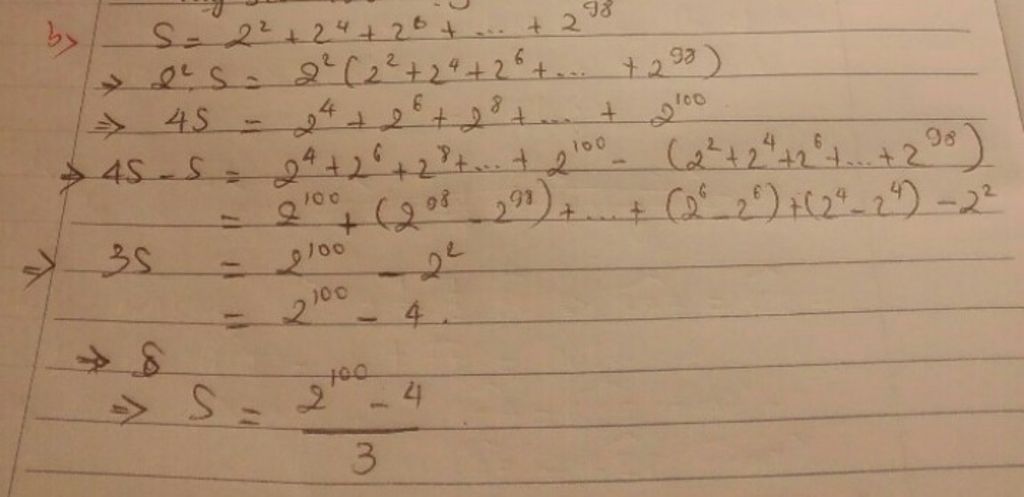 b) S = 2² + 2⁴ + 2⁶ + ... + 2⁹⁸
⇒ 2² . S = 2² (2² + 2⁴ + 2⁶ + ... + 2⁹⁸)
⇒ 4S = 2⁴ + 2⁶ + 2⁸ + ... + 2¹⁰⁰
⇒ 4S - S = 2⁴ + 2⁶ + 2⁸ + ... + 2¹⁰⁰ - (2² + 2⁴ + 2⁶ + ... + 2⁹⁸)
= 2¹⁰⁰ + (2⁹⁸ - 2⁹⁸) + ... + (2⁶ - 2⁶) + (2⁴ - 2⁴) - 2²
⇒ 3S = 2¹⁰⁰ - 2²
= 2¹⁰⁰ - 4.
⇒ S
⇒ S = (2¹⁰⁰ - 4) / 3